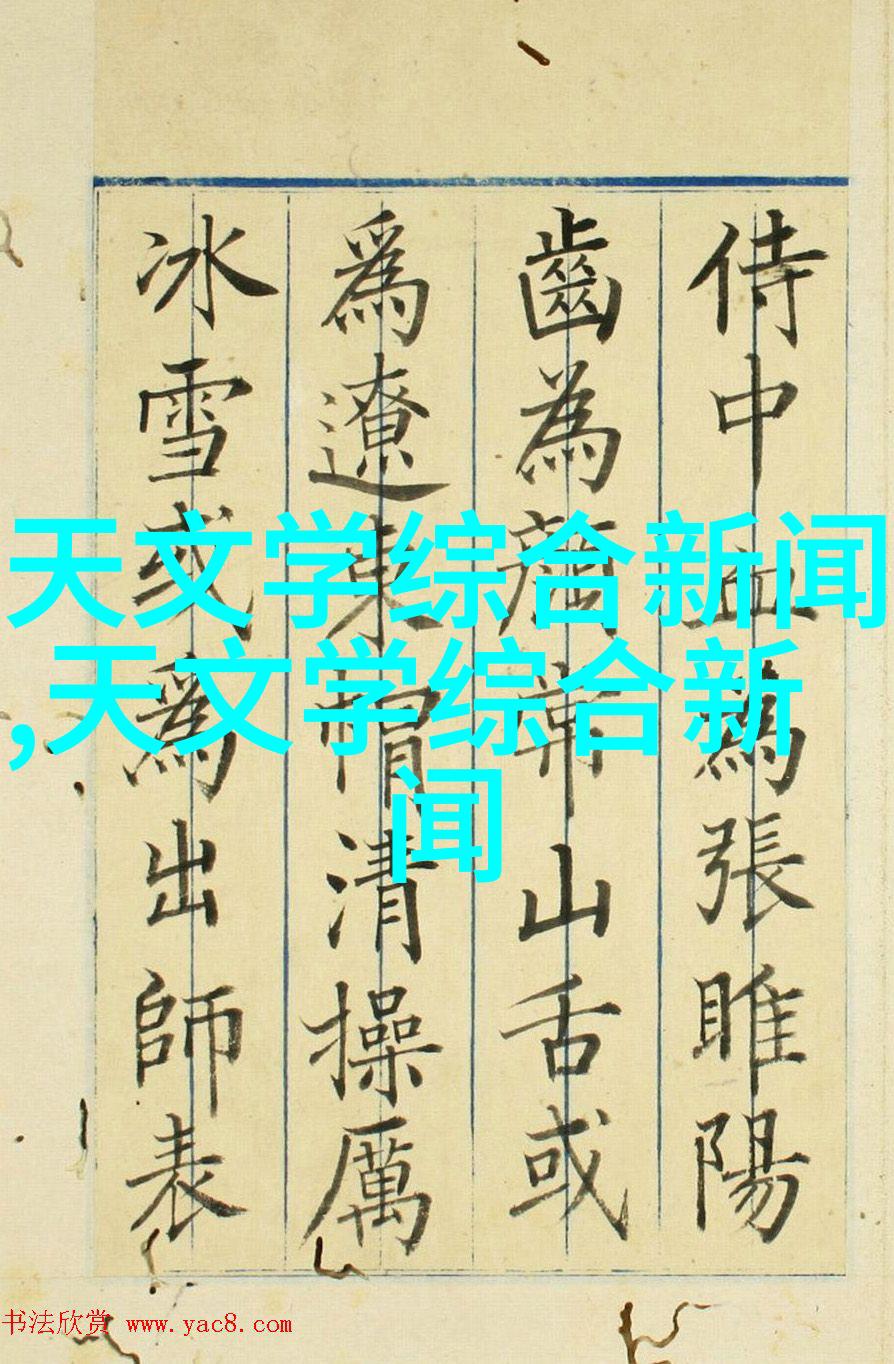 侍中血為張睢陽
齒為顏常山舌或
爲遼東帽清操厲
冰雪或爲出師表
天文学综合新闻
,天文学综合新
闻
书法欣赏 www.yac8.com